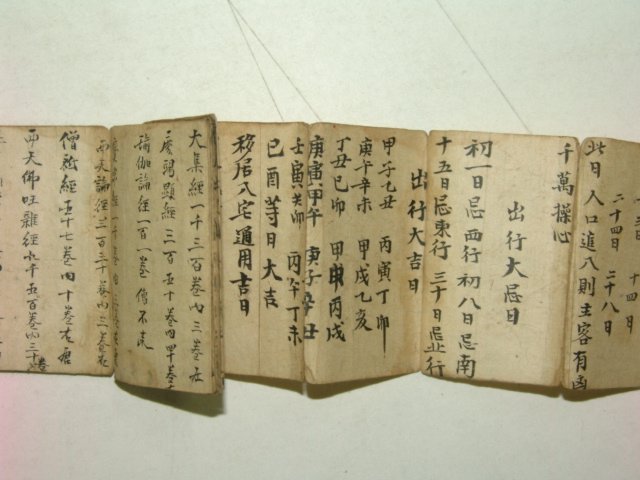 十四日
二十四日 二十八日
此日人口進入則主客有凶
千萬操心
出行大忌日
初一日忌西行 初八日忌南
十五日忌東行 三十日忌北行
出行大吉日
甲子乙丑 丙寅丁卯
庚午辛未 甲戌乙亥
丁丑己卯 甲申丙戌
庚寅甲午 庚子辛丑
壬寅癸卯 丙午丁未
己酉等日大吉
移居入宅通用吉日
大集經一千三百卷內三卷在
瑜伽論經一百一卷
西天論經三百三十卷內三卷在
僧祇經五十七卷內十卷在唐
西天佛
雜經
五百卷內三十